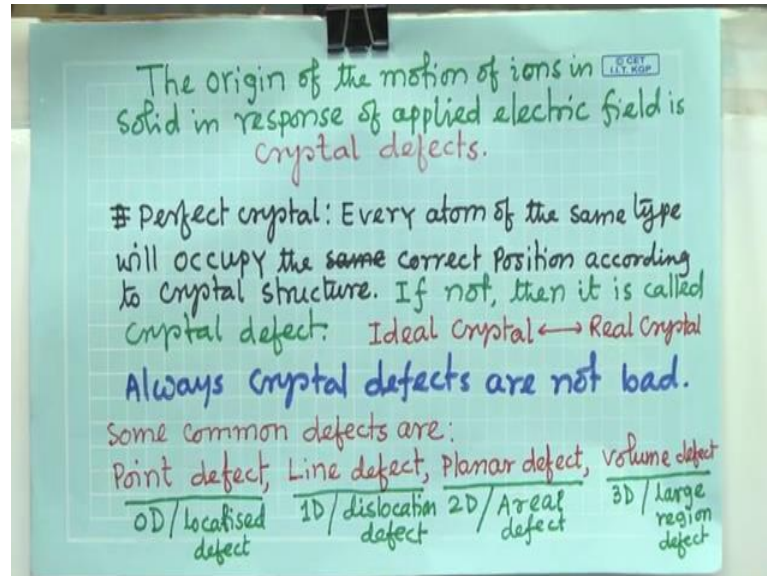 The origin of the motion of ions in © CET I.I.T. KGP
solid in response of applied electric field is
crystal defects.
# Perfect crystal: Every atom of the same type
will occupy the same correct Position according
to crystal structure. If not, then it is called
crystal defect: Ideal Crystal ⟷ Real Crystal
Always crystal defects are not bad.
Some common defects are:
Point defect, Line defect, Planar defect, Volume defect
0D/Localised defect 1D/dislocation defect 2D/Areal defect 3D/large region defect